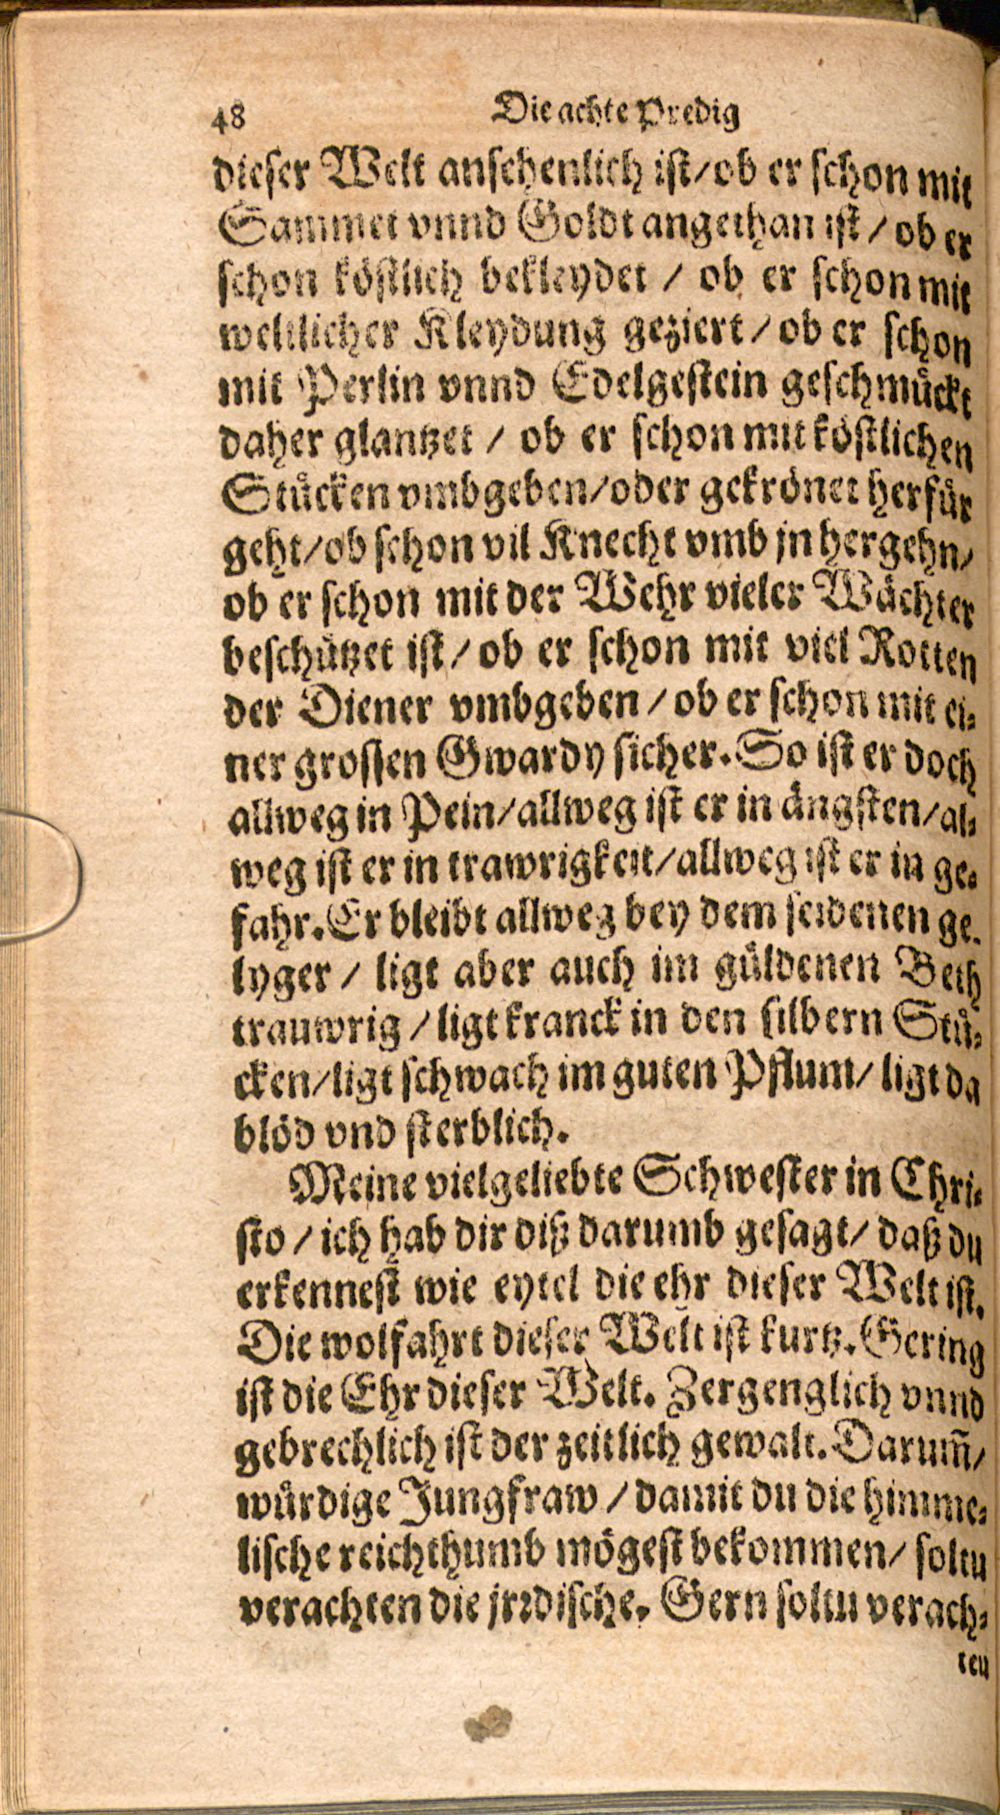 48 Die achte Predig
dieser Welt ansehenlich ist/ob er schon mit
Sammet vnnd Goldt angethan ist / ob er
schon köstlich bekleydet / ob er schon mit
weltlicher Kleydung geziert/ob er schon
mit Perlin vnnd Edelgestein geschmückt
daher glantzet / ob er schon mit köstlichen
Stücken vmbgeben/oder gekrönet herfür
geht/ob schon vil Knecht vmb jn hergehn/
ob er schon mit der Wehr vieler Wächter
beschützet ist/ob er schon mit viel Rotten
der Diener vmbgeben/ob er schon mit ei-
ner grossen Gwardy sicher. So ist er doch
allweg in Pein/allweg ist er in ängsten/al-
weg ist er in trawrigkeit/allweg ist er in ge-
fahr. Er bleibt allweg bey dem seidenen ge-
lyger / ligt aber auch im güldenen Beth
trauwrig/ligt kranck in den silbern Stü-
cken/ligt schwach im guten Pflum/ligt da
blöd vnd sterblich.
Meine vielgeliebte Schwester in Chri-
sto/ich hab dir diß darumb gesagt/daß du
erkennest wie eytel die ehr dieser Welt ist.
Die wolfahrt dieser Welt ist kurtz. Gering
ist die Ehr dieser Welt. Zergenglich vnnd
gebrechlich ist der zeitlich gewalt. Darum̃/
würdige Jungfraw/damit du die himme-
lische reichthumb mögest bekommen/ soltu
verachten die jrꝛdische. Gern soltu verach-
ten